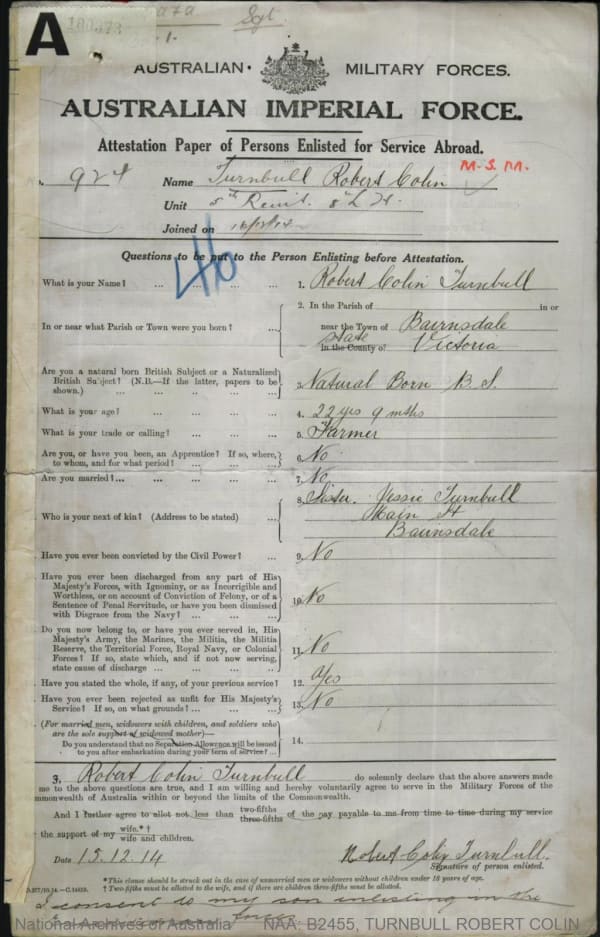 A
Sgt
1.
AUSTRALIAN MILITARY FORCES.
AUSTRALIAN IMPERIAL FORCE.
Attestation Paper of Persons Enlisted for Service Abroad.
M.S.M.
924 Name Turnbull Robert Colin
Unit 5th Reinft. 8th L H.
Joined on
46
Questions to be put to the Person Enlisting before Attestation.
What is your Name? ... ... ... ... 1. Robert Colin Turnbull
2. In the Parish of in or
In or near what Parish or Town were you born? ... near the Town of Bairnsdale
State
in the County of Victoria
Are you a natural born British Subject or a Naturalized
British Subject? (N.B.—If the latter, papers to be
shown.) ... ... ... ... ... 3. Natural Born B. S.
What is your age? ... ... ... ... 4. 22 yrs 9 mths
What is your trade or calling? ... ... ... 5. Farmer
Are you, or have you been, an Apprentice? If so, where,
to whom, and for what period? ... ... ... 6. No
Are you married? ... ... ... ... ... 7. No
8. Sister. Jessie Turnbull
Who is your next of kin? (Address to be stated) ... Main St
Bairnsdale
Have you ever been convicted by the Civil Power? ... 9. No
Have you ever been discharged from any part of His
Majesty's Forces, with Ignominy, or as Incorrigible and
Worthless, or on account of Conviction of Felony, or of a
Sentence of Penal Servitude, or have you been dismissed
with Disgrace from the Navy? ... ... ... 10. No
Do you now belong to, or have you ever served in, His
Majesty's Army, the Marines, the Militia, the Militia
Reserve, the Territorial Force, Royal Navy, or Colonial
Forces? If so, state which, and if not now serving,
state cause of discharge ... ... ... ... 11. No
Have you stated the whole, if any, of your previous service? 12. Yes
Have you ever been rejected as unfit for His Majesty's
Service? If so, on what grounds? ... ... ... 13. No
(For married men, widowers with children, and soldiers who
are the sole support of widowed mother)—
Do you understand that no Separation Allowance will be issued
to you after embarkation during your term of service? ... 14.
I, Robert Colin Turnbull do solemnly declare that the above answers made
me to the above questions are true, and I am willing and hereby voluntarily agree to serve in the Military Forces of the
mmonwealth of Australia within or beyond the limits of the Commonwealth.
And I further agree to allot not less than two-fifths three-fifths of the pay payable to me from time to time during my service
the support of my wife.*† wife and children.
Date 15.12.14 Robert Colin Turnbull.
Signature of person enlisted.
*This clause should be struck out in the case of unmarried men or widowers without children under 18 years of age.
† Two-fifths must be allotted to the wife, and if there are children three-fifths must be allotted.
I consent to my son enlisting in the
force
National Archives of Australia NAA: B2455, TURNBULL ROBERT COLIN